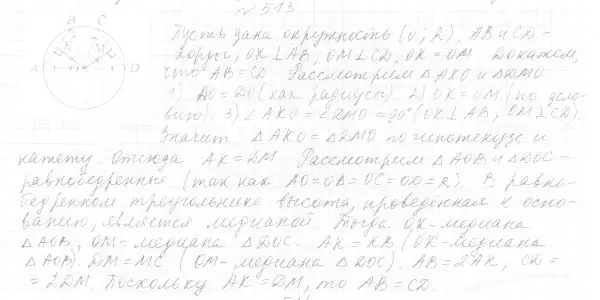 № 513
B C
K M
A D
Пусть дана окружность (O; R), AB и CD -
хорды, OK ⊥ AB, OM ⊥ CD, OK = OM. Докажем,
что AB = CD. Рассмотрим △ AKO и △ DMO
1) AO = DO (как радиусы) 2) OK = OM (по усло-
вию) 3) ∠ AKO = ∠ DMO = 90° (OK ⊥ AB, OM ⊥ CD)
Значит △ AKO = △ DMO по гипотенузе и
катету. Отсюда AK = DM. Рассмотрим △ AOB и △ DOC -
равнобедренные (так как AO = OB = OC = OD = R). В равно-
бедренном треугольнике высота, проведенная к осно-
ванию, является медианой. Тогда OK - медиана
△ AOB, OM - медиана △ DOC. AK = KB (OK - медиана
△ AOB). DM = MC (OM - медиана △ DOC). AB = 2AK, CD =
= 2DM. Поскольку AK = DM, то AB = CD.